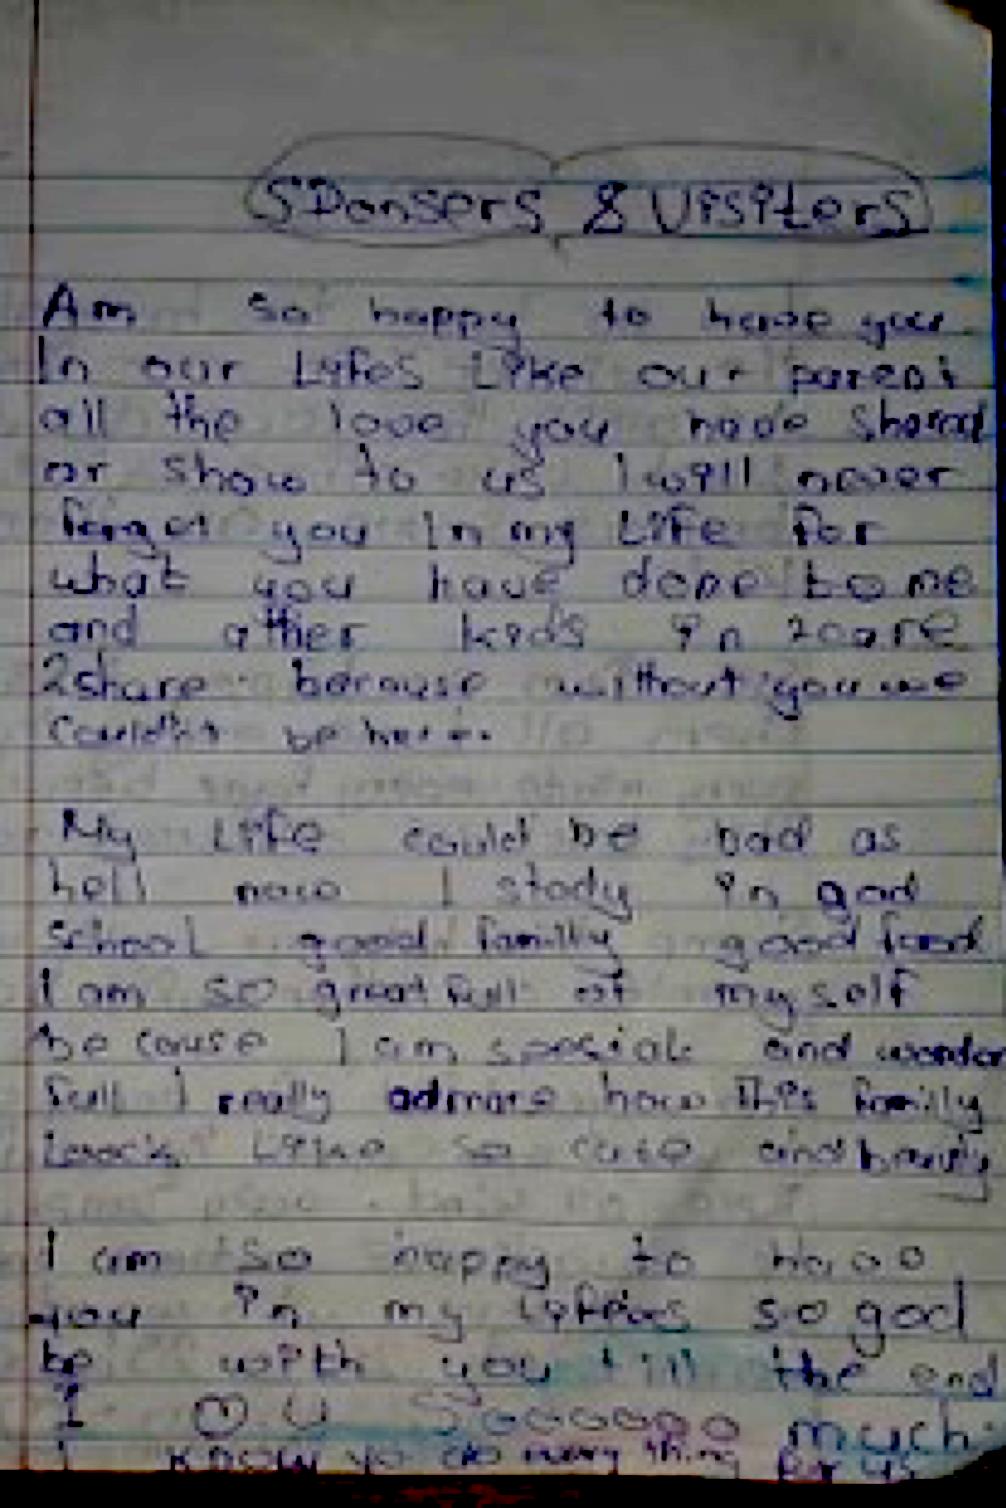 SDonsers & Visiters
Am so happy to have you
In our Lyfes Like our parent
all the love you have shared
or show to us I will never
forget you In my Life for
what you have done to me
and other kids in 2care
2share because without you we
Couldn't be here.
My Life could be bad as
hell now I study in god
school good familly good food
I am so greatfull of my self
because I am spesial and wonder
full I really admare how this familly
Loock Like so cute and
I am so happy to have
you in my so god
be with you till the end
I U Sooooooo much
I know yo do every thing for us